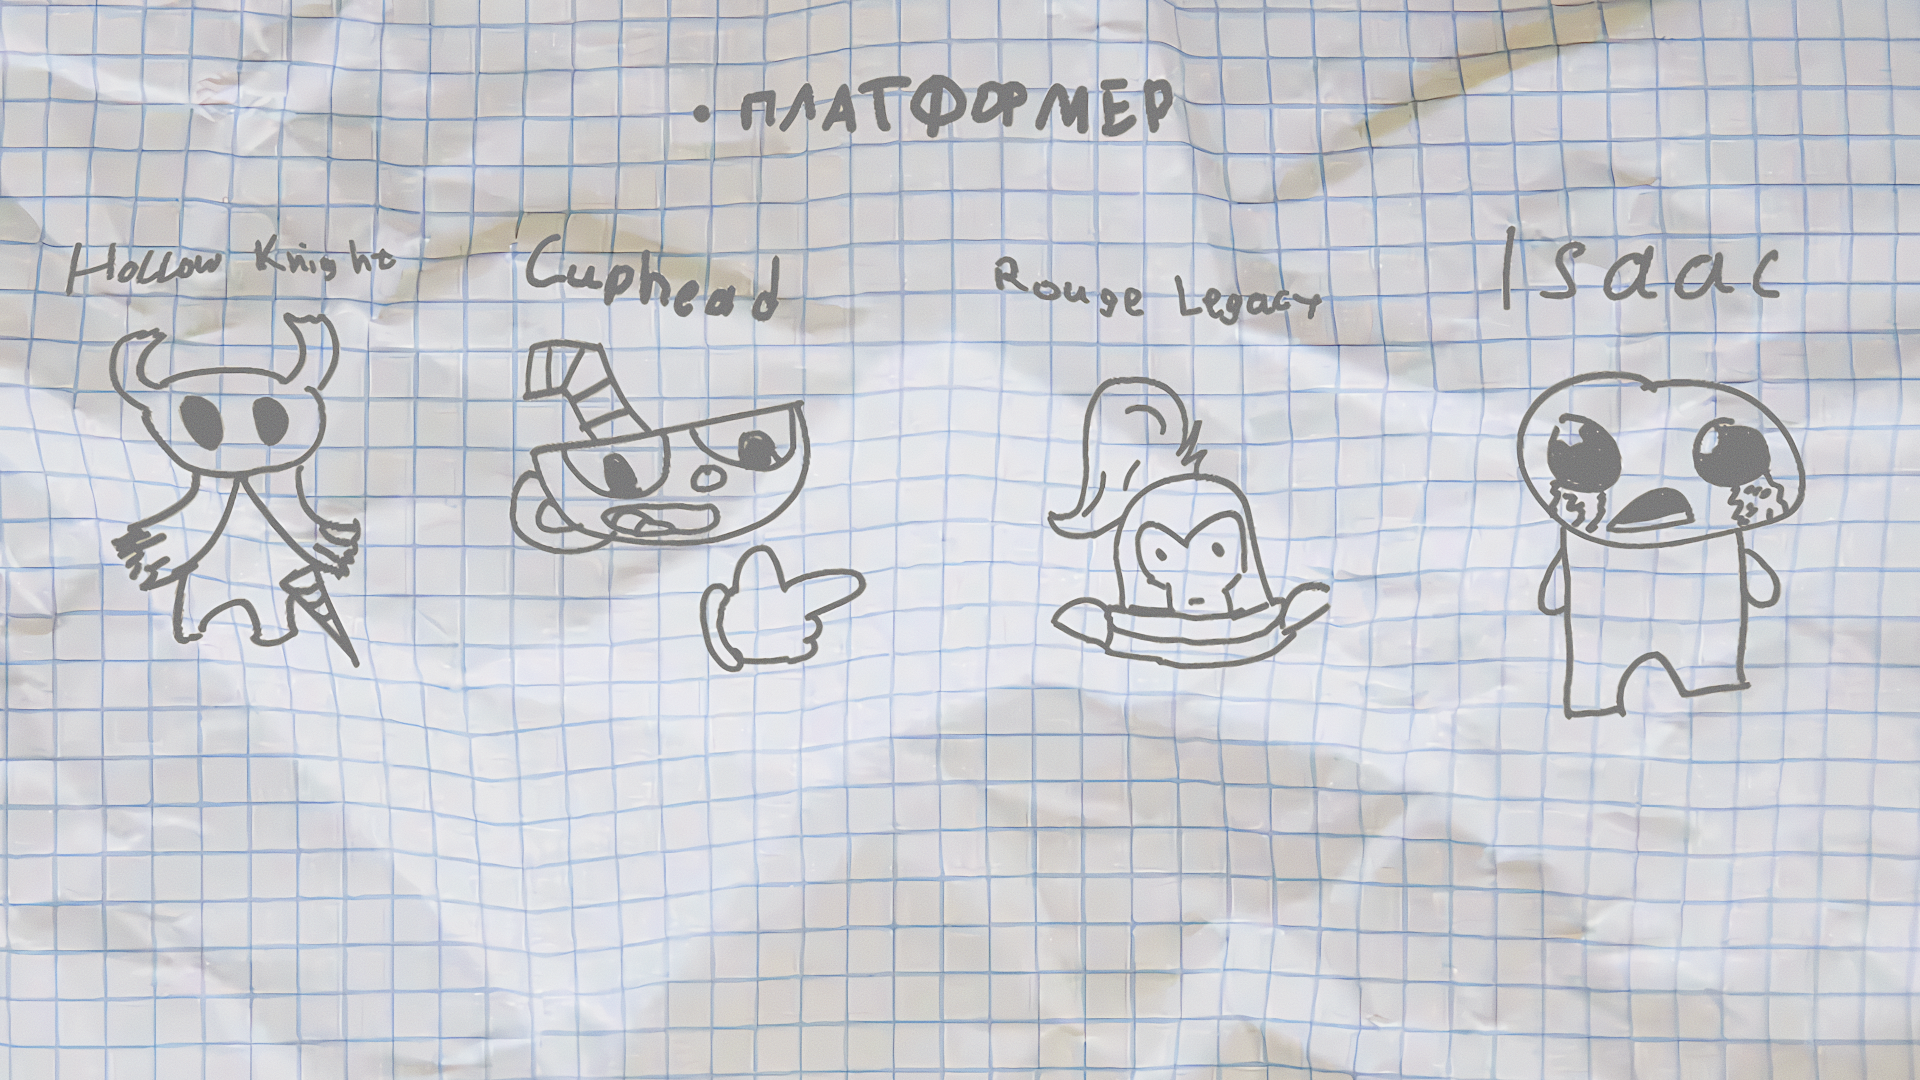 • ПЛАТФОРМЕР
Hollow Knight
Cuphead
Rouge Legacy
Isaac